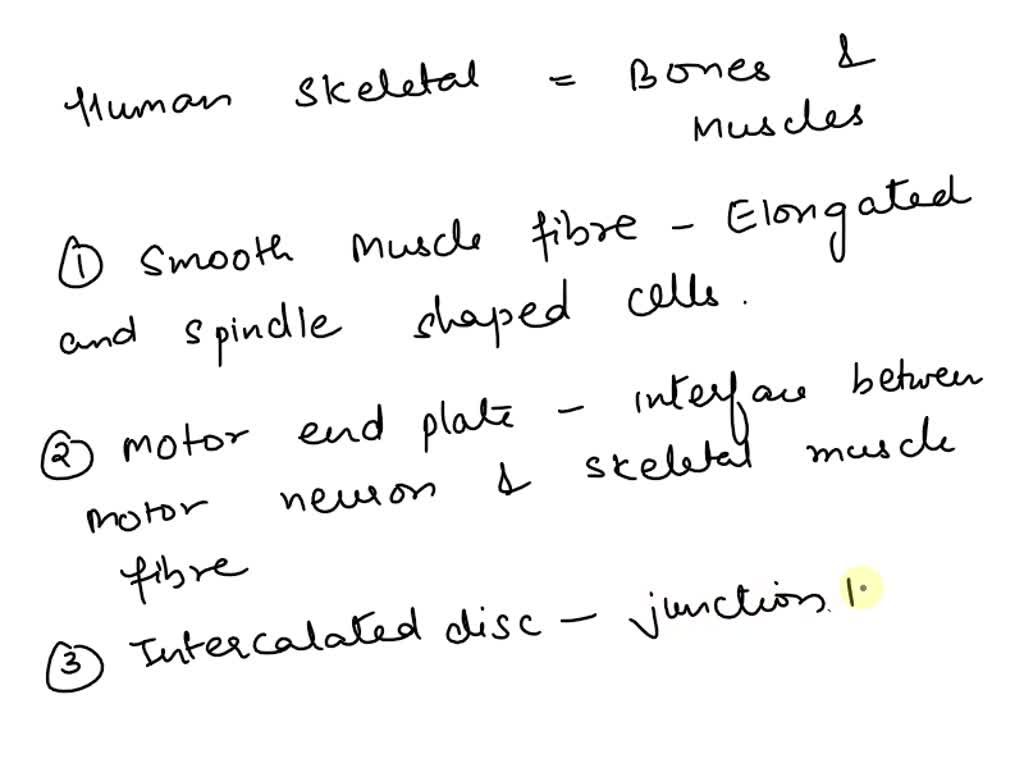 Human Skeletal = Bones &
Muscles
① Smooth Muscle fibre - Elongated
and spindle shaped cells.
② Motor end plate - interface between
Motor neuron & skeletal muscle
fibre
③ Intercalated disc - junction